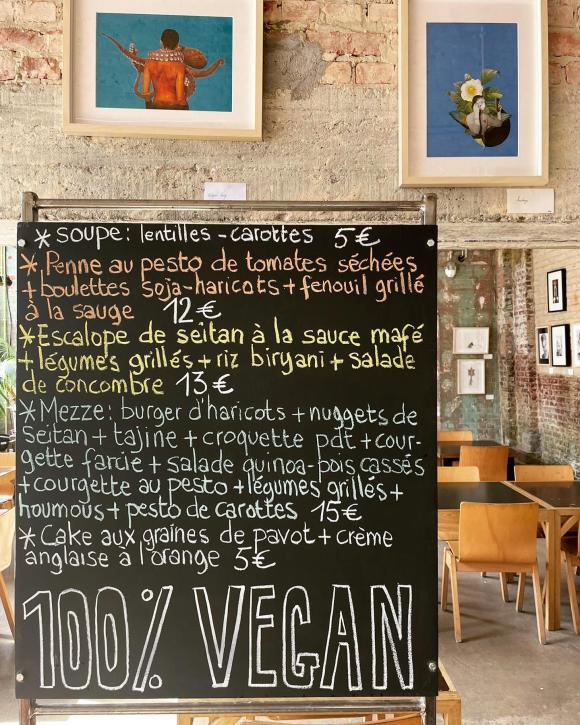 * soupe: lentilles - carottes 5€
* Penne au pesto de tomates séchées
+ boulettes soja-haricots + fenouil grillé
à la sauge 12€
* Escalope de seitan à la sauce mafé
+ légumes grillés + riz biryani + salade
de concombre 13€
* Mezze: burger d'haricots + nuggets de
seitan + tajine + croquette pdt + cour-
gette farcie + salade quinoa-pois cassés
+ courgette au pesto + légumes grillés +
houmous + pesto de carottes 15€
* Cake aux graines de pavot + crème
anglaise à l'orange 5€
100% VEGAN